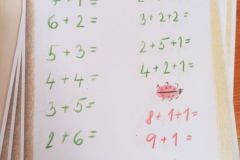 6+2=
5+3=
4+4=
3+5=
2+6=
3+2+2=
2+5+1=
4+2+1=
8+1+1=
9+1=